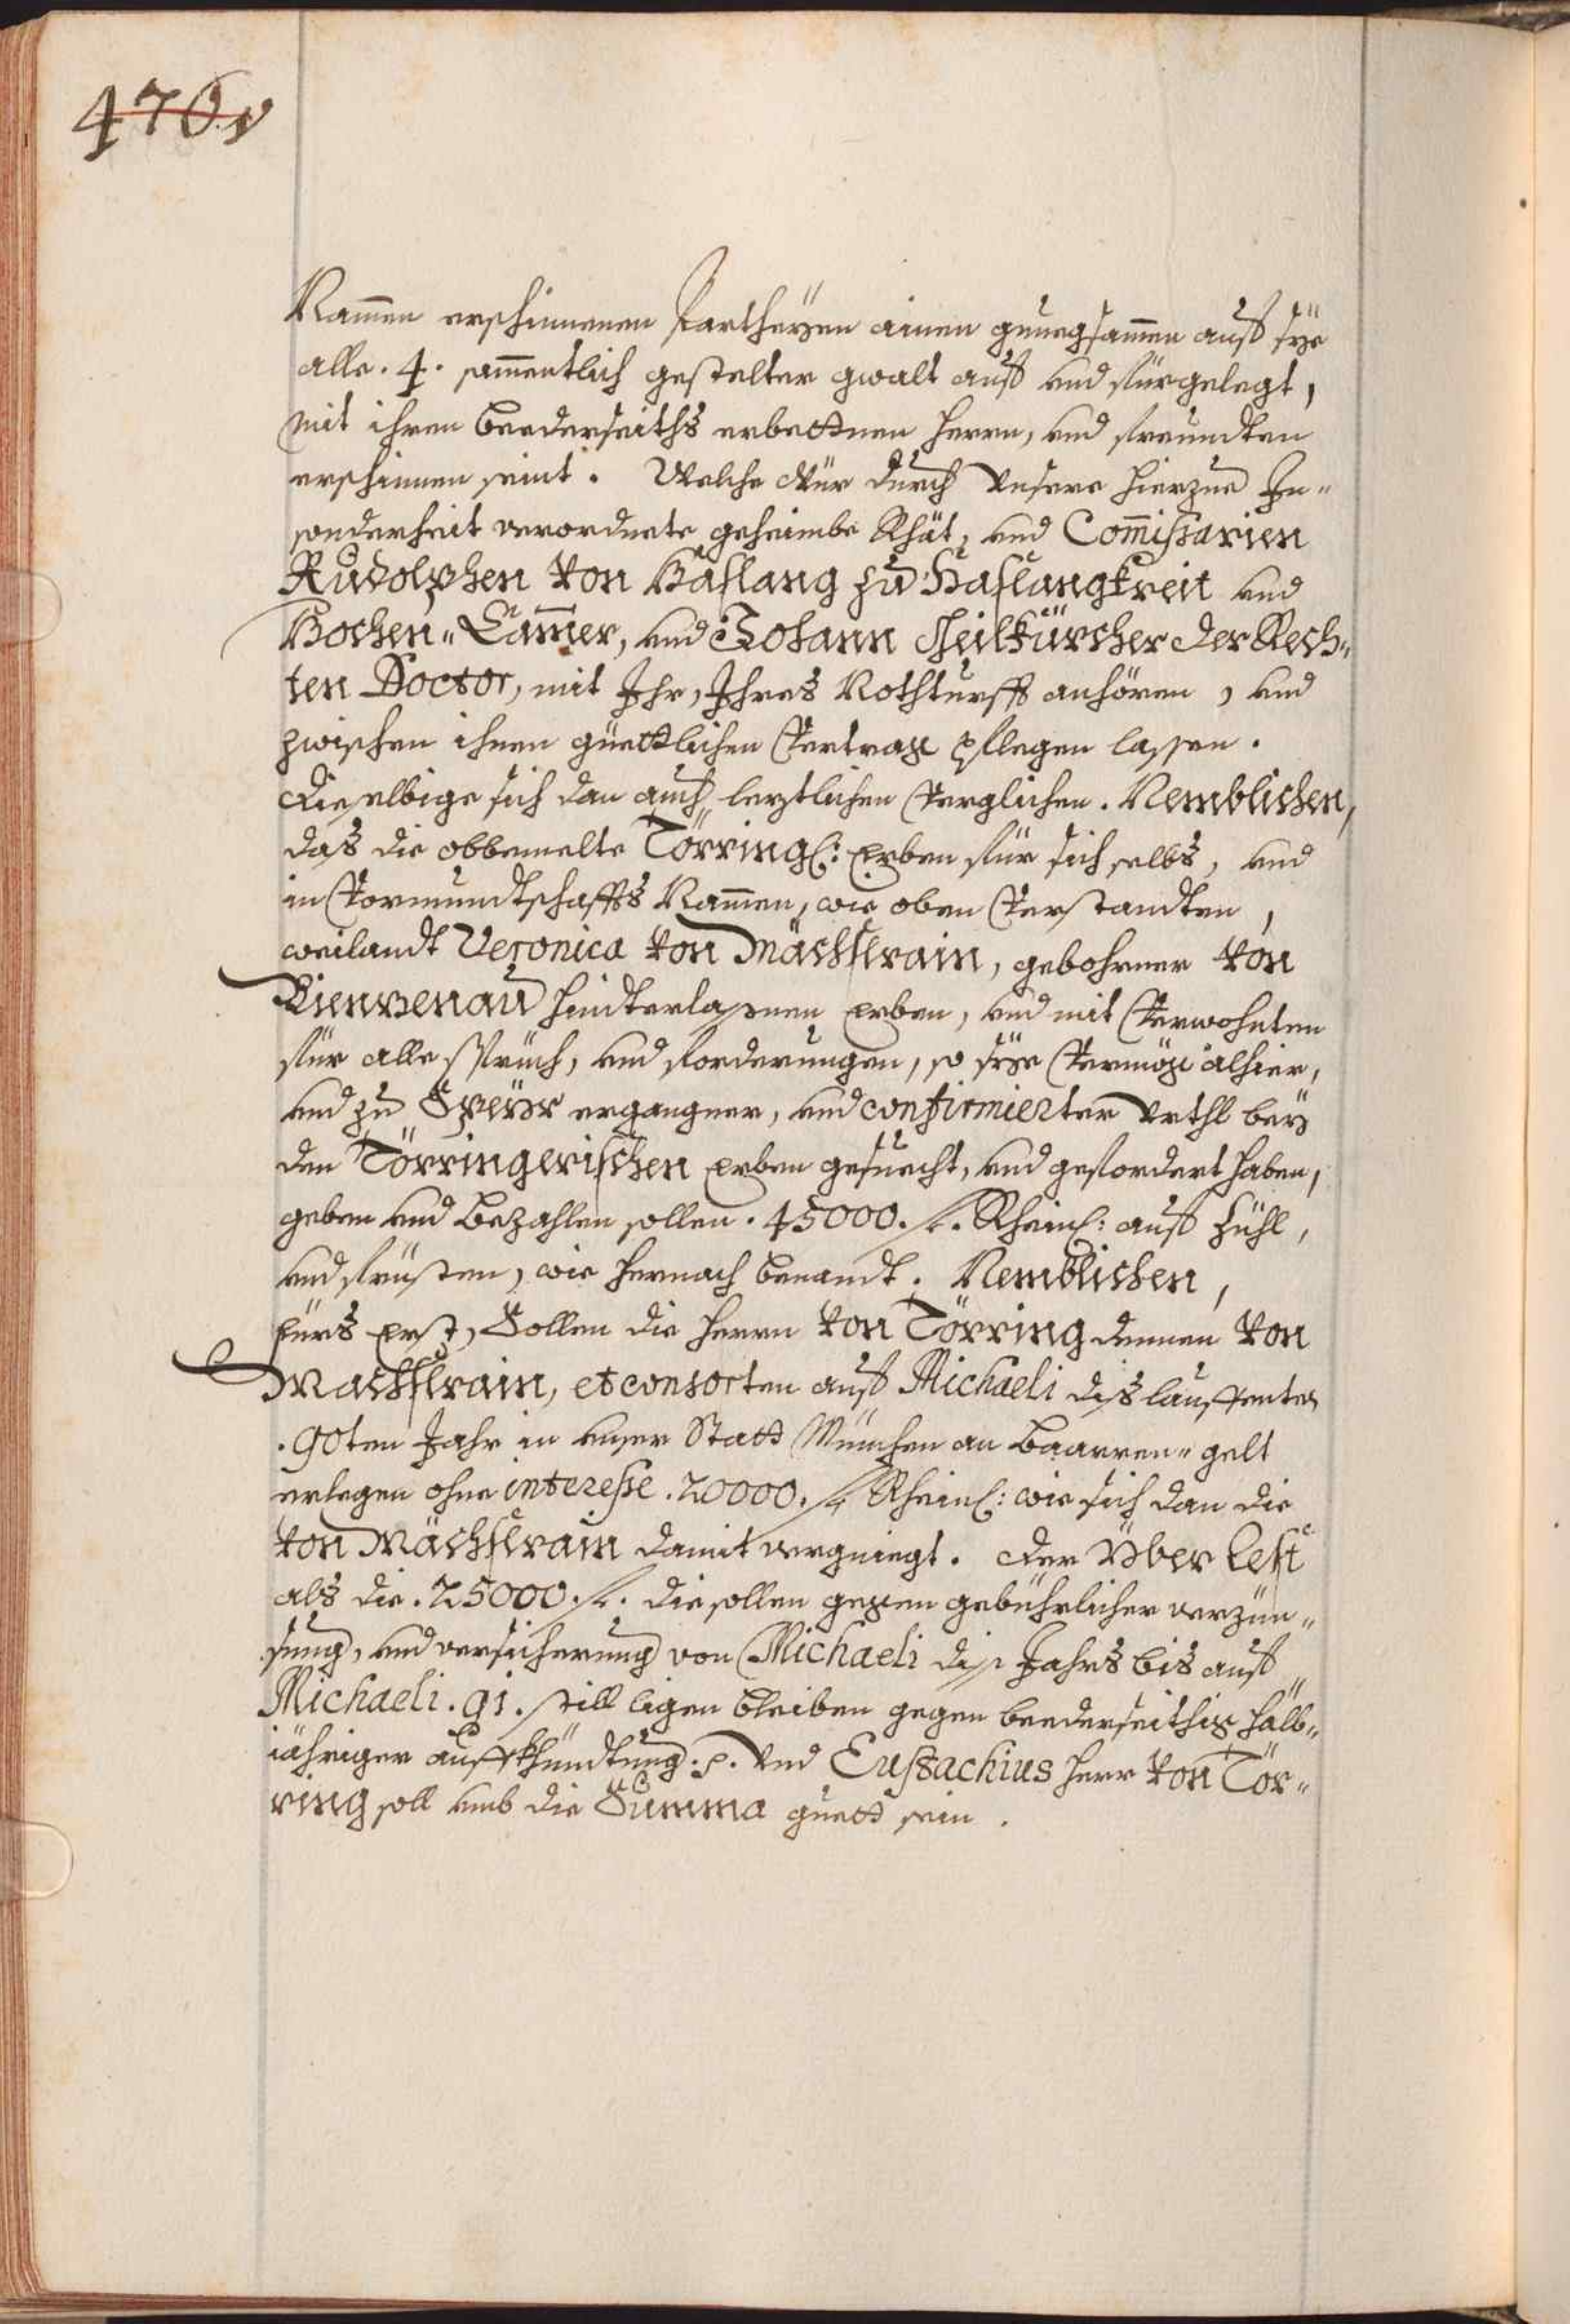 470v
Nammen erschinnenen Partheyen ainen gnuegsammen auf sÿe
alle .4. sammentlich gestelter gwalt auf und fürgelegt,
mit ihren beederseiths erbettnen Herrn, und freundten
erschinnen seint. Welche Wür durch Unsere hierzue In„
sonderheit verordnete geheimbe Rhät, und Commissarien
Rudolphen von Haslang zu Haslangkreit und
Hochen„Camer, und Johann Heilkürcher der Rech„
ten Doctor, mit Ihr, Ihres Nothturfft anhören, und
zwischen ihnen güettlichen Vertrag pflegen lassen.
Dieselbige sich dan auch leztlichen Verglichen. Nemblichen,
das die obbemelte Törring: Erben für sich selbs, und
in Vormundtschaffts Nammen, wie oben Verstandten,
weilandt Veronica von Mächslrain, gebohrner von
Pienzenau hindterlassnen Erben, und mit Verwohnten
für alle Sprüch, und forderungen, so sÿe Vermög alhier,
und zu Speÿr ergangner, und confirmierter Urthl beÿ
den Törringerischen Erben gesuecht, und gefordert haben,
geben und bezahlen sollen .45000. fl. Rheinl: auf Zühl,
und früsten, wie hernach benandt. Nemblichen,
Fürs Erst, Sollen die Herrn von Törring denen von
Machslrain, et consorten auf Michaeli dis lauffentes
.90ten Jahr in unser Statt München an Baarren„gelt
erlegen ohne interesse .20000. fl. Rheinl: wie sich dan die
von Mächslrain damit vergniegt. Der Über Rest
als die .25000. fl. die sollen gegen gebührlicher verzün„
sung, und versicherung von Michaeli diss Jahrs bis auf
Michaeli .91. still ligen bleiben gegen beederseithig halb„
jähriger auffkhündtung. p. Und Eustachius Herr von Tör„
ring soll umb die Summa guett sein.